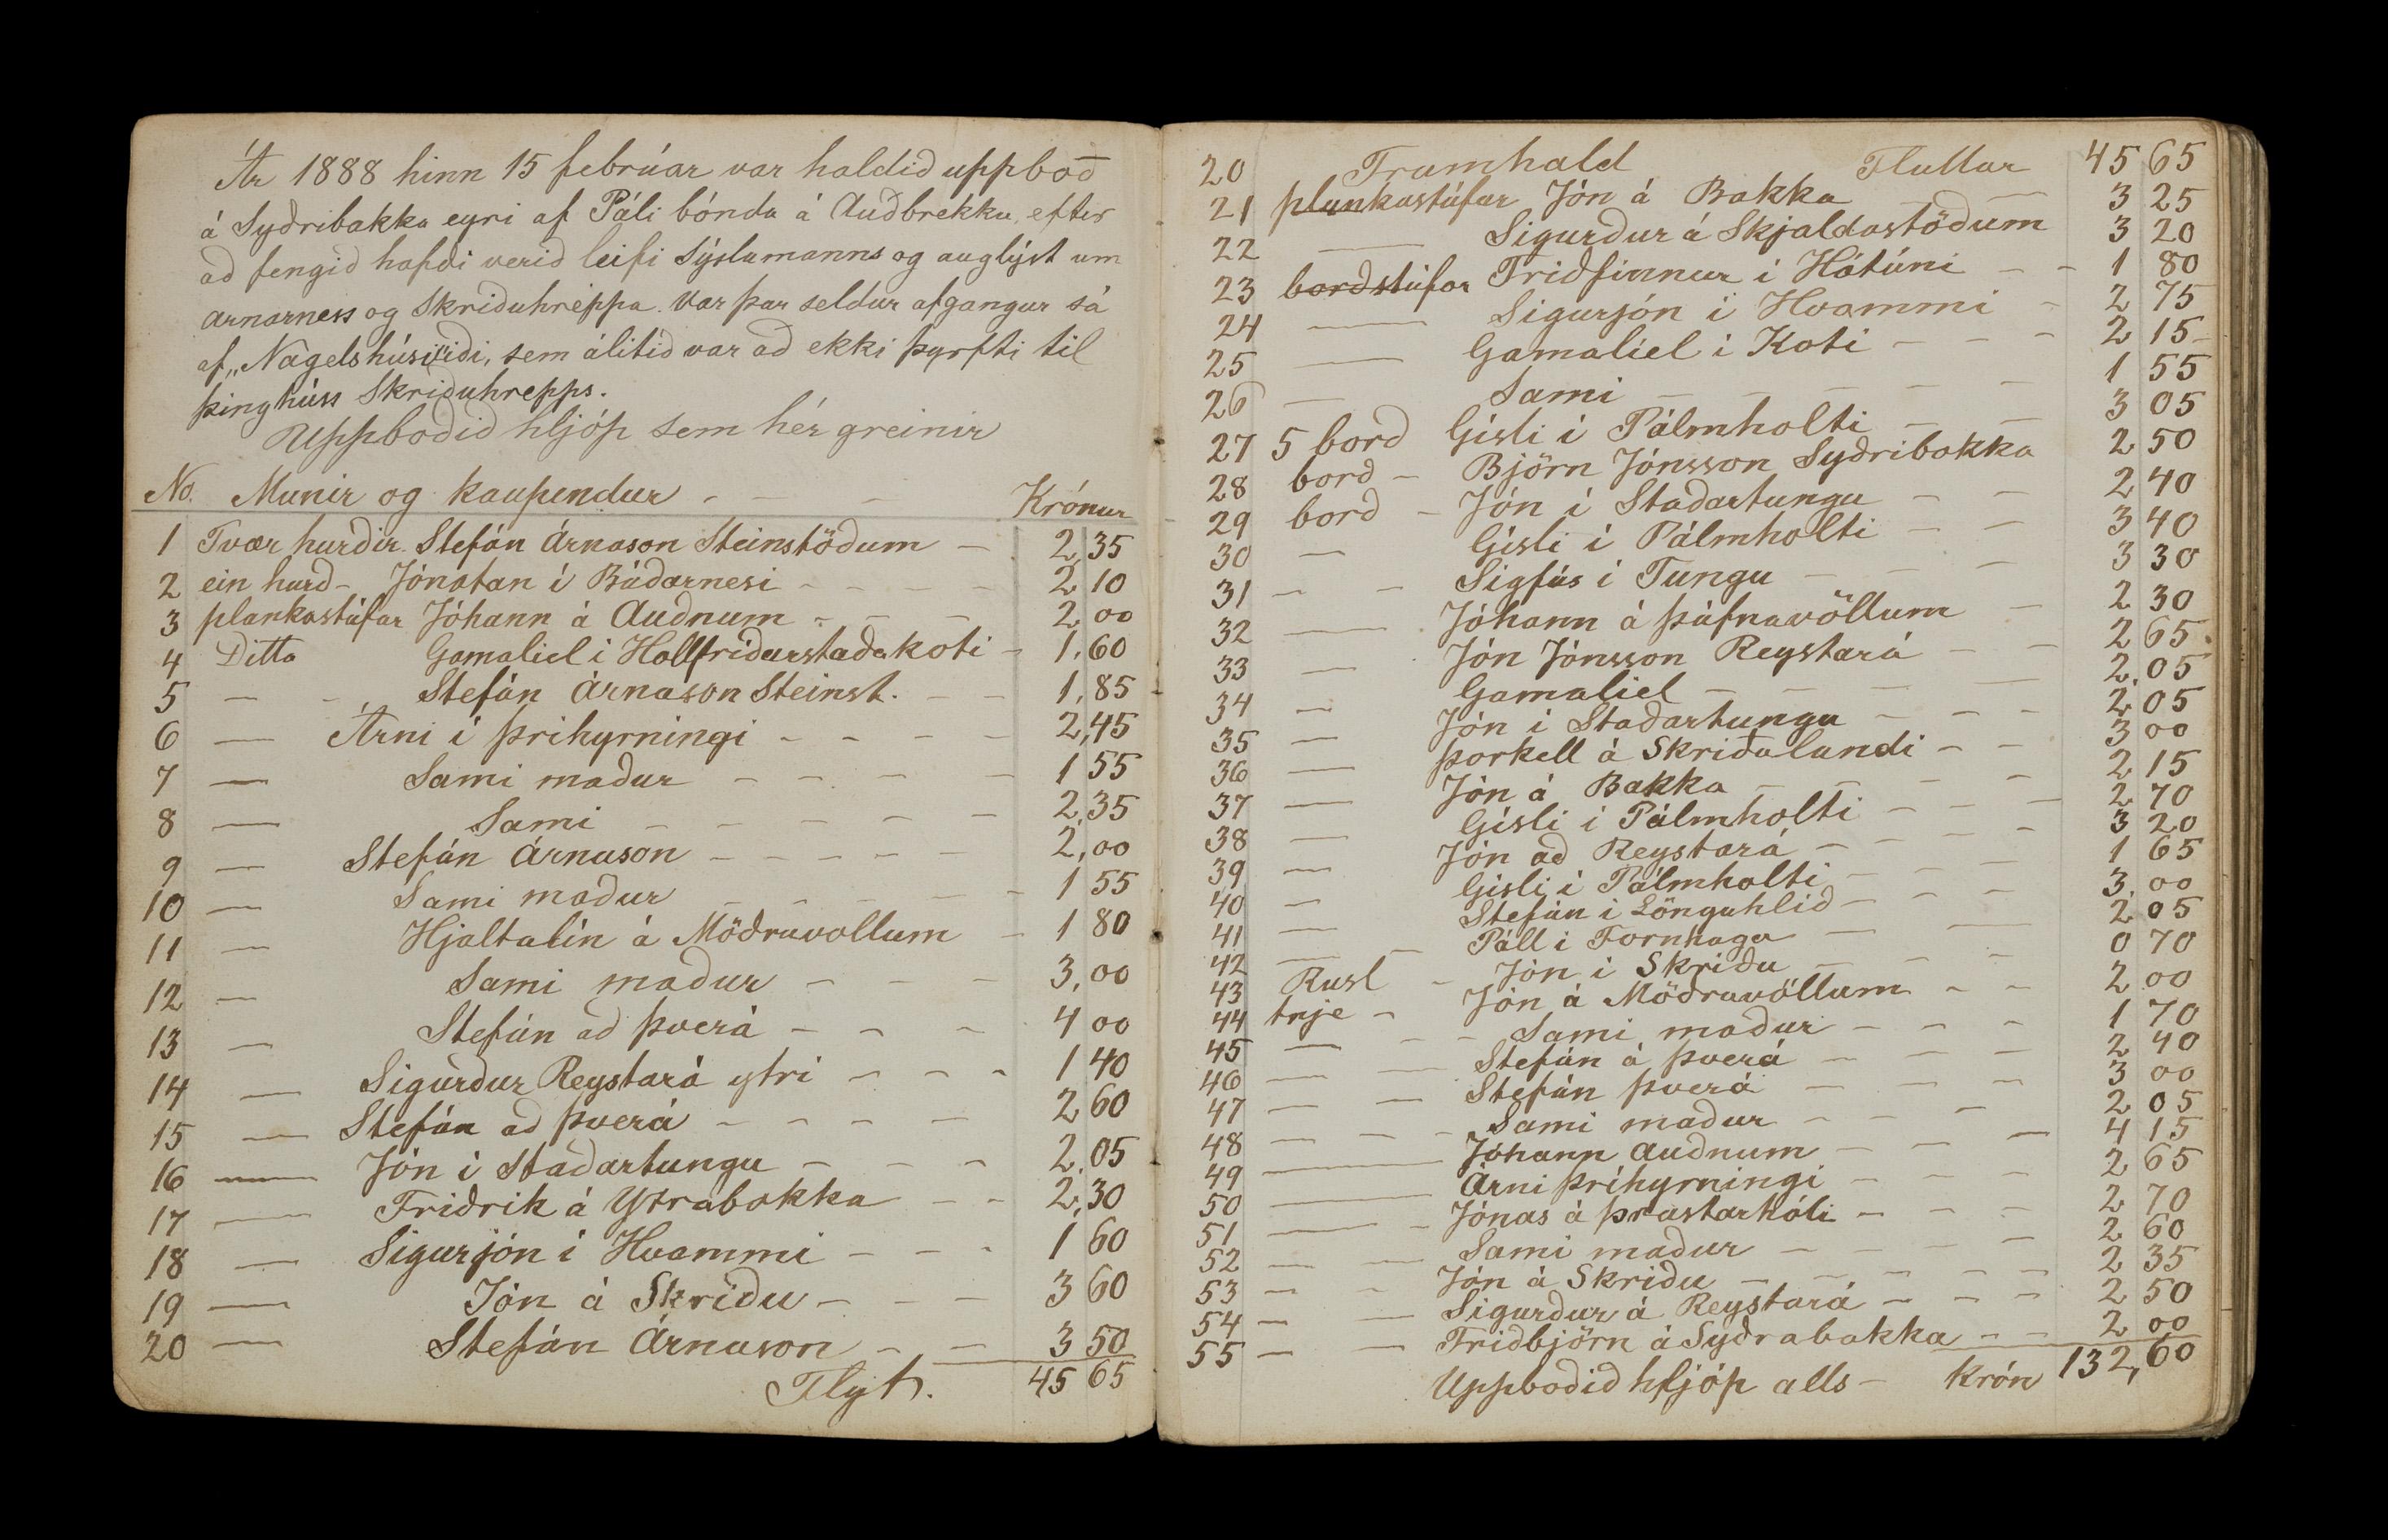 Ár 1888 hinn 15 febrúar var haldið uppboð
á Syðribakka eyri af Páli bónda á Auðbrekku, eftir
að fengið hafði verið leifi Sýslumanns og auglýst um
Arnarness og Skriðuhreppa. Var þar seldur afgangur sá
af „Nagelshúsiviði, sem álitið var að ekki þyrfti til
þinghúss Skriðuhrepps.
Uppboðið hljóp sem hér greinir
No. Munir og kaupendur - - - Krónur
1 Tvær hurðir Stefán Árnason Steinstöðum - 2,35
2 ein hurð - Jónatan í Búðarnesi - - - - 2,10
3 plankastúfar Jóhann á Auðnum - - - 2,00
4 Ditto Gamaliel í Hallfríðarstaðakoti - 1,60
5 - - Stefán Árnason Steinst. - - 1,85
6 — Árni í Þríhyrningi - - - - 2,45
7 — Sami maður - - - - - 1 55
8 — Sami - - - - - 2,35
9 — Stefán Árnason - - - - - 2,00
10 — Sami maður - - - - - 1 55
11 — Hjaltalín á Möðruvollum - 1 80
12 — Sami maður - - - 3,00
13 — Stefán að Þverá - - - 4 00
14 — Sigurður Reystará ytri - - - 1 40
15 — Stefán að Þverá - - - - 2 60
16 — Jón í Staðartungu - - - 2,05
17 — Friðrik á Ytrabakka - - 2,30
18 — Sigurjón í Hvammi - - - 1 60
19 — Jón á Skriðu - - - 3 60
20 — Stefán Árnason - - 3 50
Flyt. 45 65
20 Framhald Fluttar 45 65
21 plankastúfar Jón á Bakka - - 3 25
22 — Sigurður á Skjaldastöðum 3 20
23 borðstúfar Friðfinnur í Hátúni - - 1 80
24 — Sigurjón í Hvammi - 2 75
25 — Gamalíel í Koti - - - 2 15
26 — Sami - - - - 1 55
27 5 borð Gísli í Pálmholti - - 3 05
28 borð - Björn Jónsson Syðribakka 2 50
29 borð - Jón í Staðartungu - - 2 40
30 — Gísli í Pálmholti - - 3 40
31 - - Sigfús í Tungu - - - 3 30
32 — Jóhann á Þúfnavöllum - 2 30
33 — Jón Jónsson Reystará - - 2 65
34 — Gamaliel - - - - 2,05
35 — Jón í Staðartungu - - - 2 05
36 — Þorkell á Skriðulandi - - 3 00
37 — Jón á Bakka - - - - 2 15
38 — Gísli í Pálmholti - - - 2 70
39 — Jón að Reystará - - - 3 20
40 — Gísli í Pálmholti - - 1 65
41 — Stefán í Lönguhlíð - - - 3,00
42 — - Páll í Fornhaga - - 2 05
43 Rusl - Jón í Skriðu - - - 0 70
44 trje - Jón á Möðruvöllum - - 2 00
45 — - - Sami maður - - - 1 70
46 — - Stefán á Þverá - - - 2 40
47 — - Stefán Þverá - - - 3 00
48 — - - Sami maður - - - 2 05
49 — Jóhann Auðnum - - - 4 15
50 — Árni Þríhyrningi - - - 2 65
51 — - Jónas á Þrastarhóli - - - 2 70
52 — - Sami maður - - - - 2 60
53 - - Jón á Skriðu - - - - - 2 35
54 — - Sigurður á Reystará - - - 2 50
55 — - Friðbjörn á Syðrabakka - - 2 00
Uppboðið hljóp alls - Krón 132,60